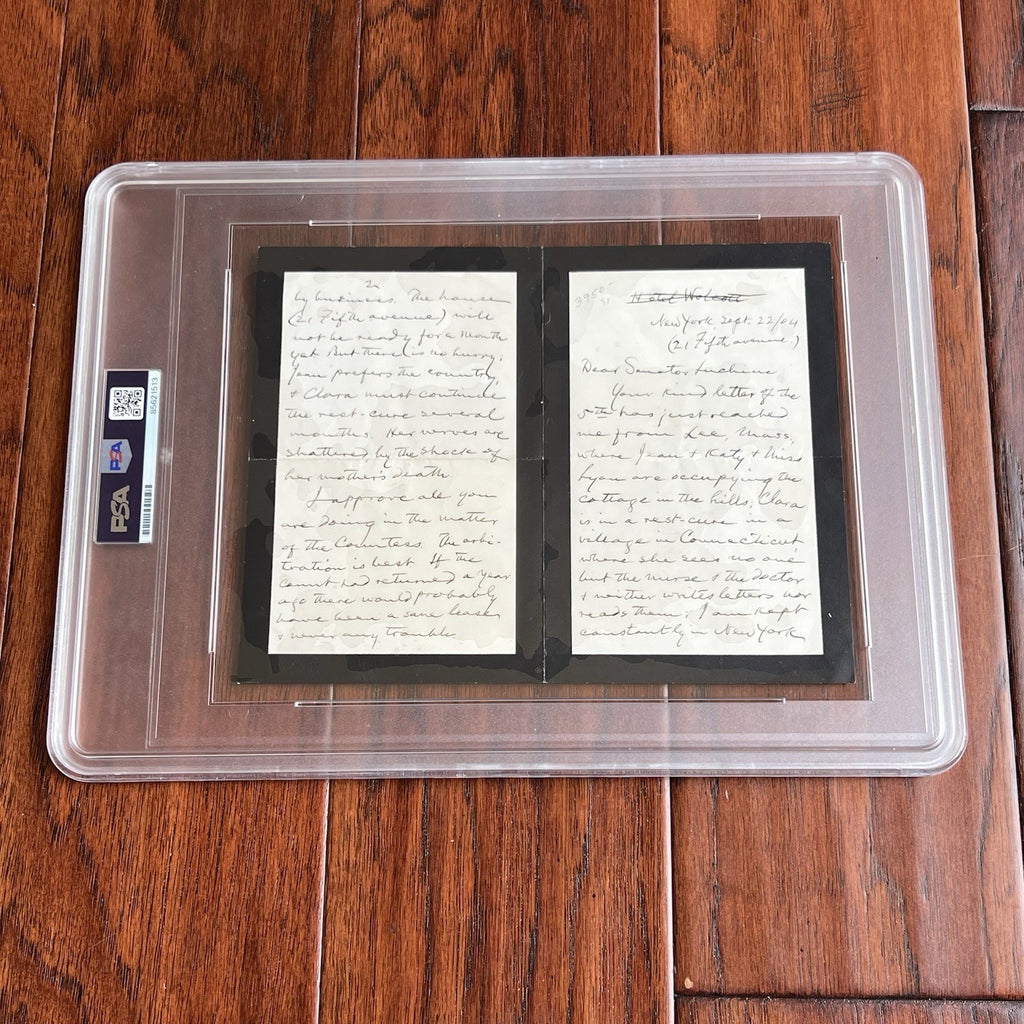 3950
51
Hotel Wolcott
New York, Sept. 22/04
(21 Fifth avenue.)
Dear Senator Luchini
Your kind letter of the
5th has just reached
me from Lee, Mass,
where Jean & Katy & Miss
Lyon are occupying the
cottage in the hills; Clara
is in a rest-cure in a
village in Connecticut
where she sees no one
but the nurse & the doctor
& neither writes letters nor
reads them; I am kept
constantly in New York
2
by business. The house
(21 Fifth avenue) will
not be ready for a month
yet But there is no hurry;
Jean prefers the country,
& Clara must continue
the rest-cure several
months. Her nerves are
shattered by the shock of
her mother's death.
I approve all you
are doing in the matter
of the Countess. The arbi-
tration is best. If the
Count had returned a year
ago there would probably
have been a sane lease
& never any trouble.
PSA
PSA
85621513